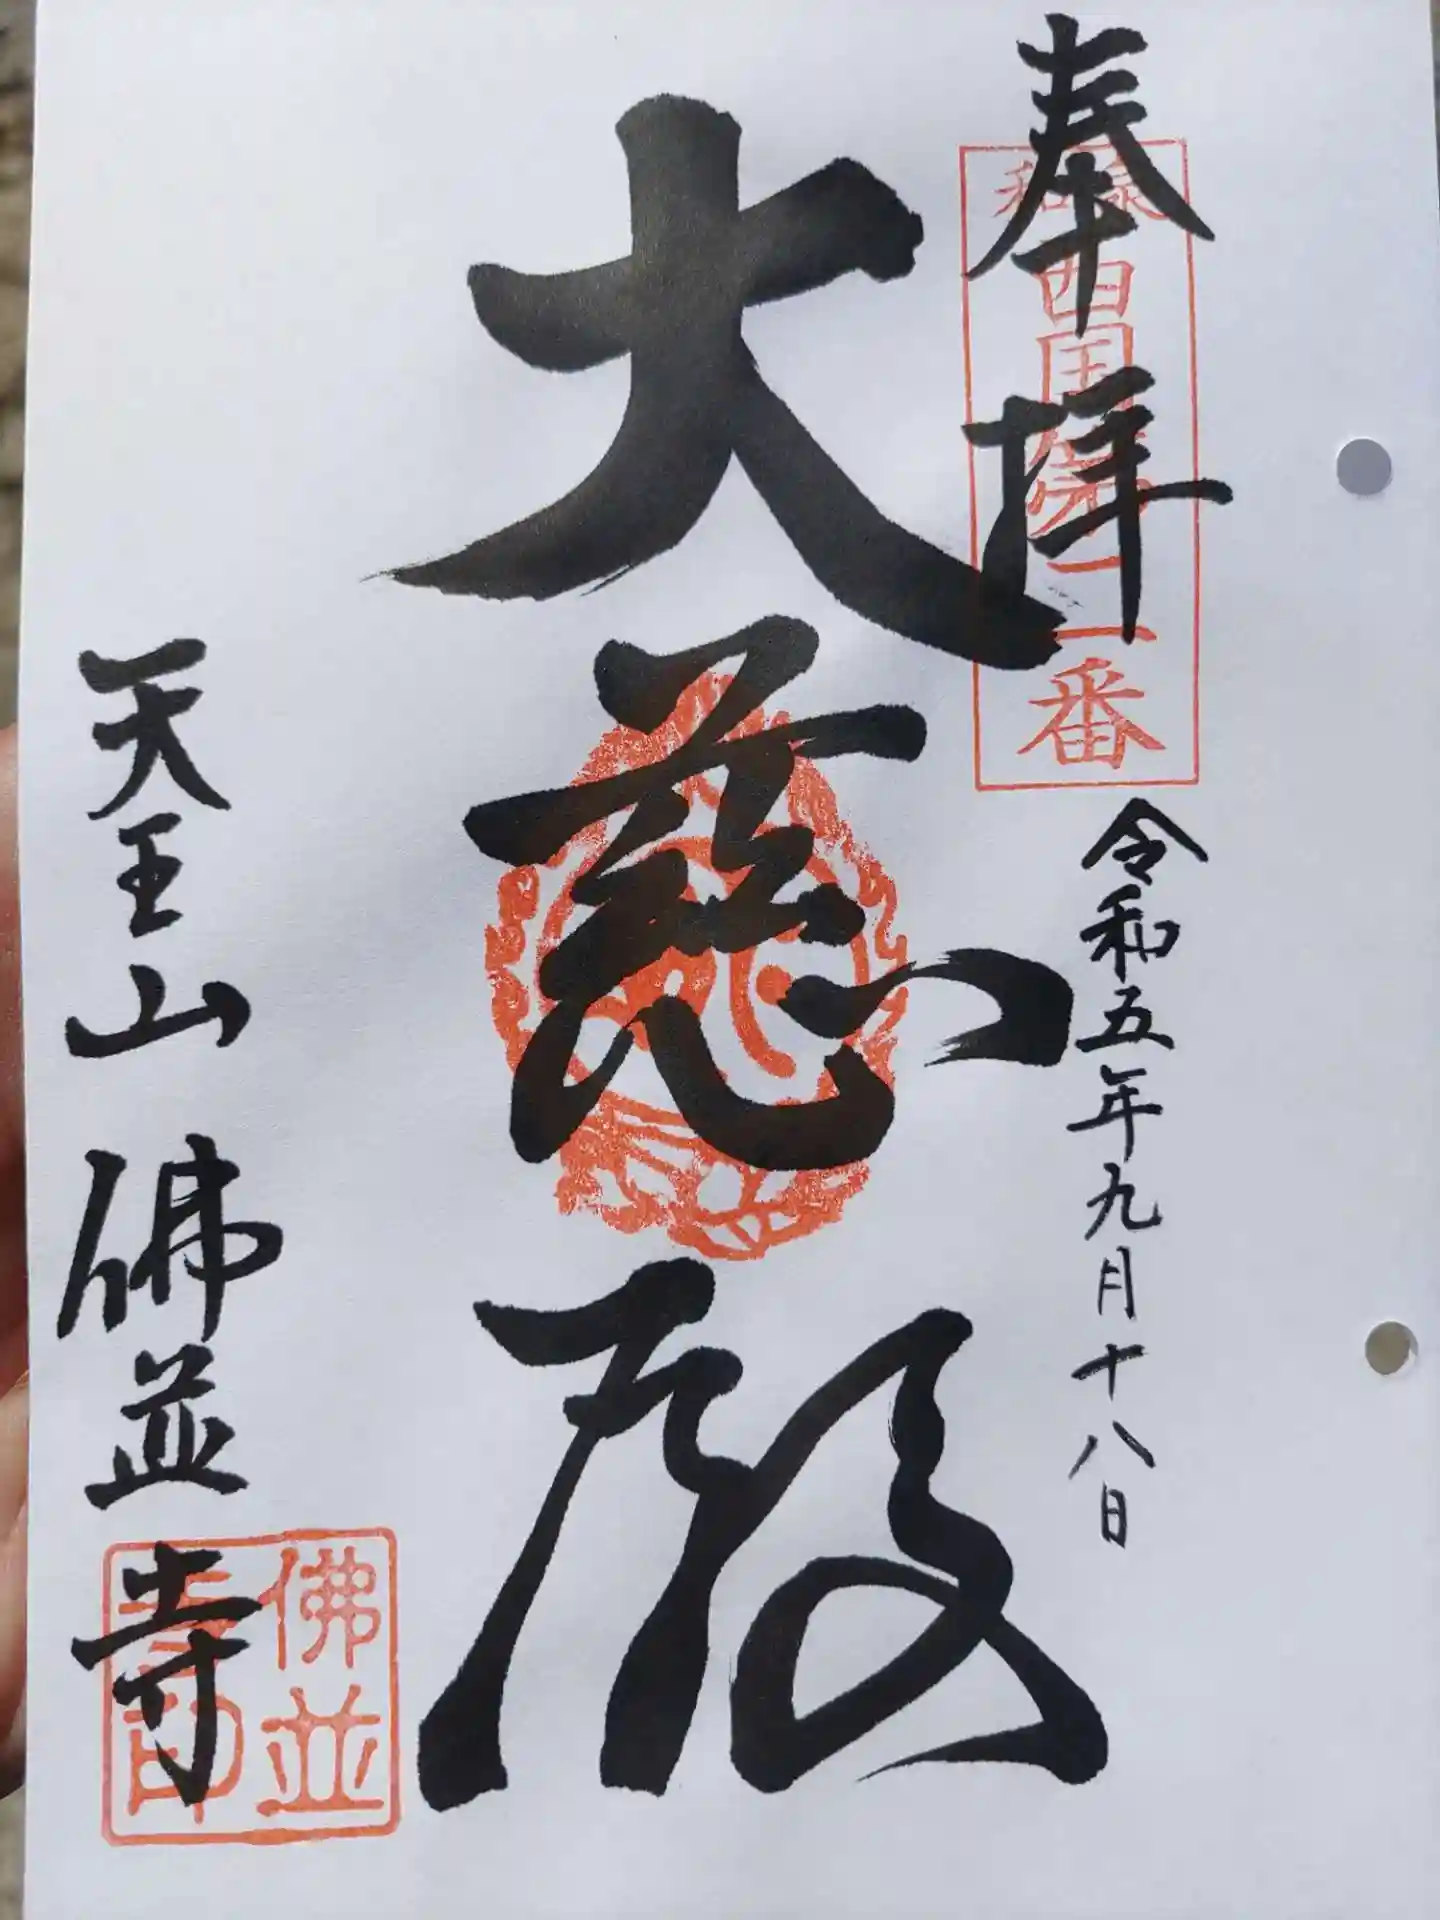 奉拝
和泉
西国第二番
令和五年九月十八日
大慈殿
天王山 佛並寺
佛並寺印